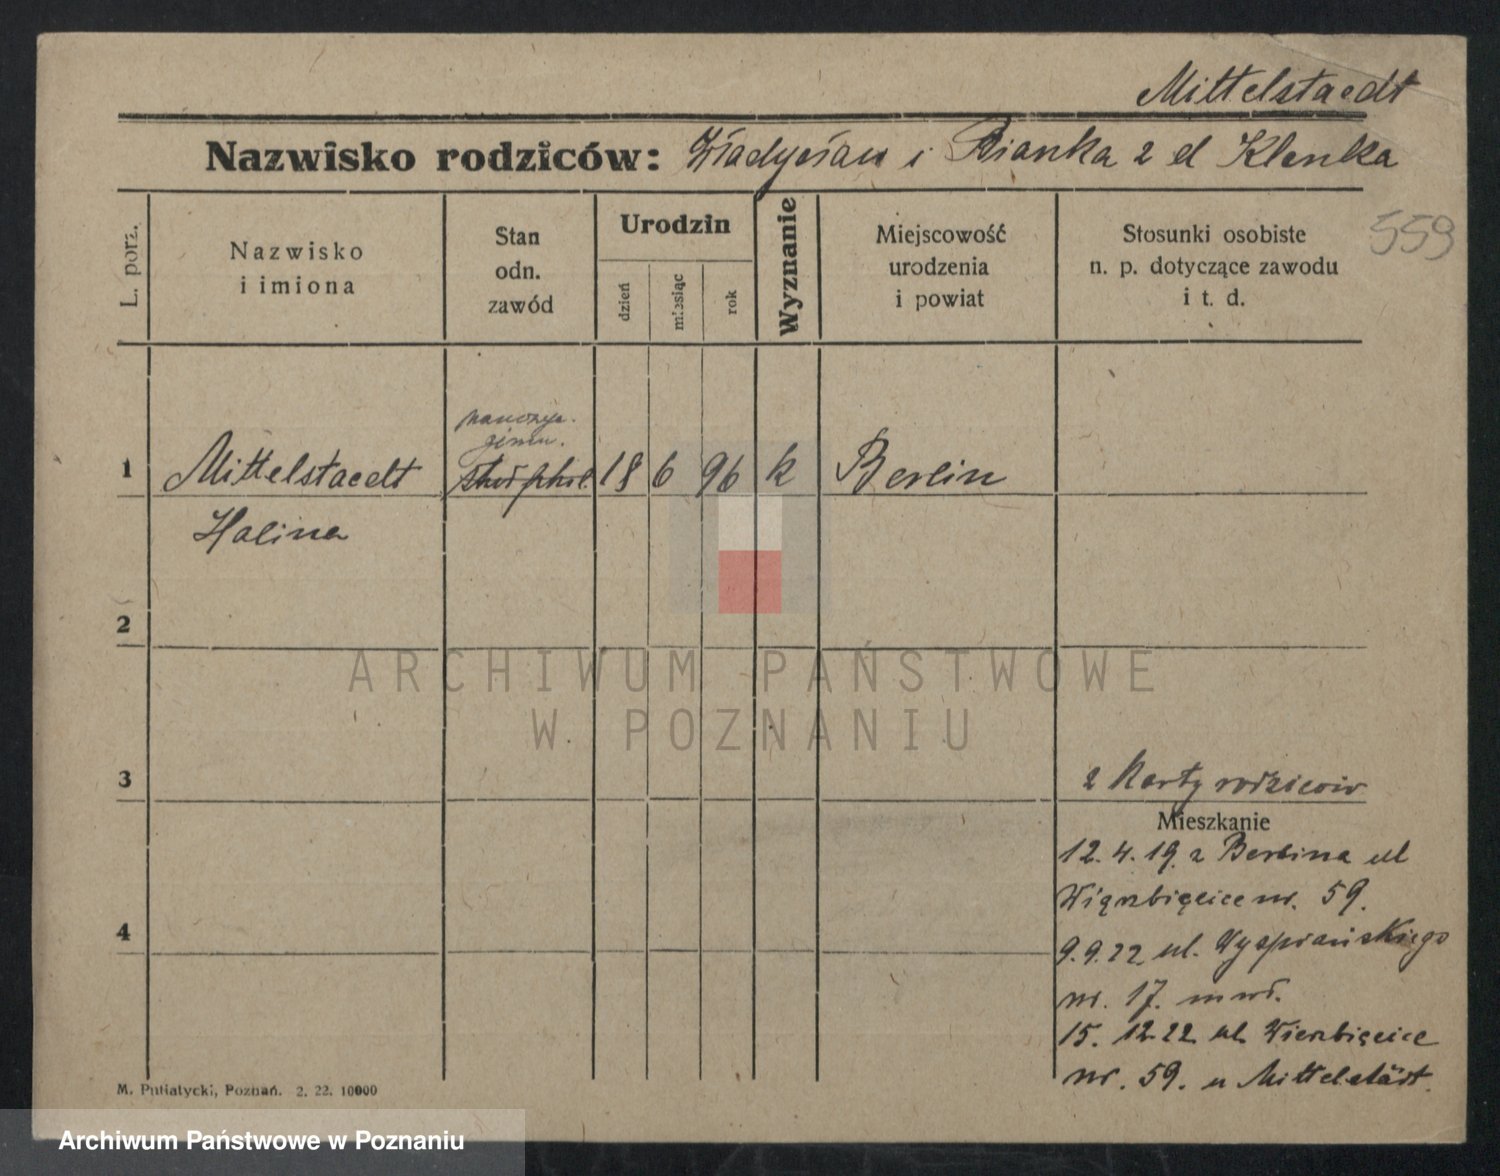 Mittelstaedt
Nazwisko rodziców: Władysław i Bianka z d Klenka
559
L. porz.
Nazwisko
i imiona
Stan
odn.
zawód
Urodzin
dzień
miesiąc
rok
Wyznanie
Miejscowość
urodzenia
i powiat
Stosunki osobiste
n. p. dotyczące zawodu
i t. d.
1
Mittelstaedt
nauczyc.
gimn.
18
6
96
k
Berlin
Halina
2
ARCHIWUM PAŃSTWOWE
W POZNANIU
3
z karty rodziców
Mieszkanie
12.4.19. z Berlina ul
Wierzbięcice nr. 59.
4
9.9.22 ul. Wyspiańskiego
nr. 17.
15. 12 22 ul Wierzbięcice
nr. 59. u Mittelstädt.
M. Putiatycki, Poznań. 2. 22. 10000
Archiwum Państwowe w Poznaniu